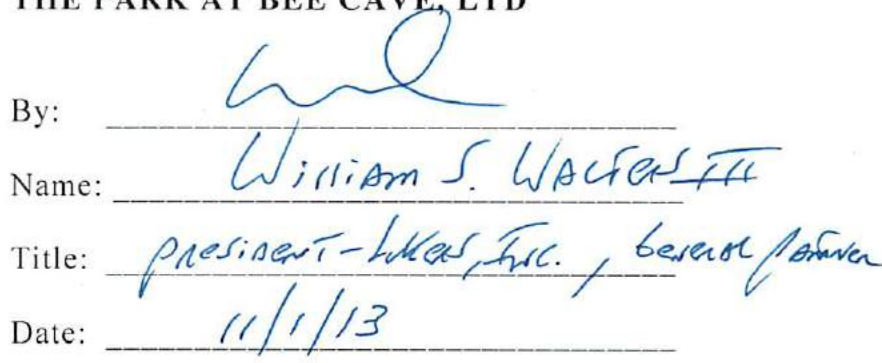 THE PARK AT BEE CAVE, LTD
By:
Name: William S. Walters III
Title: President - , Inc., General Partner
Date: 11/1/13